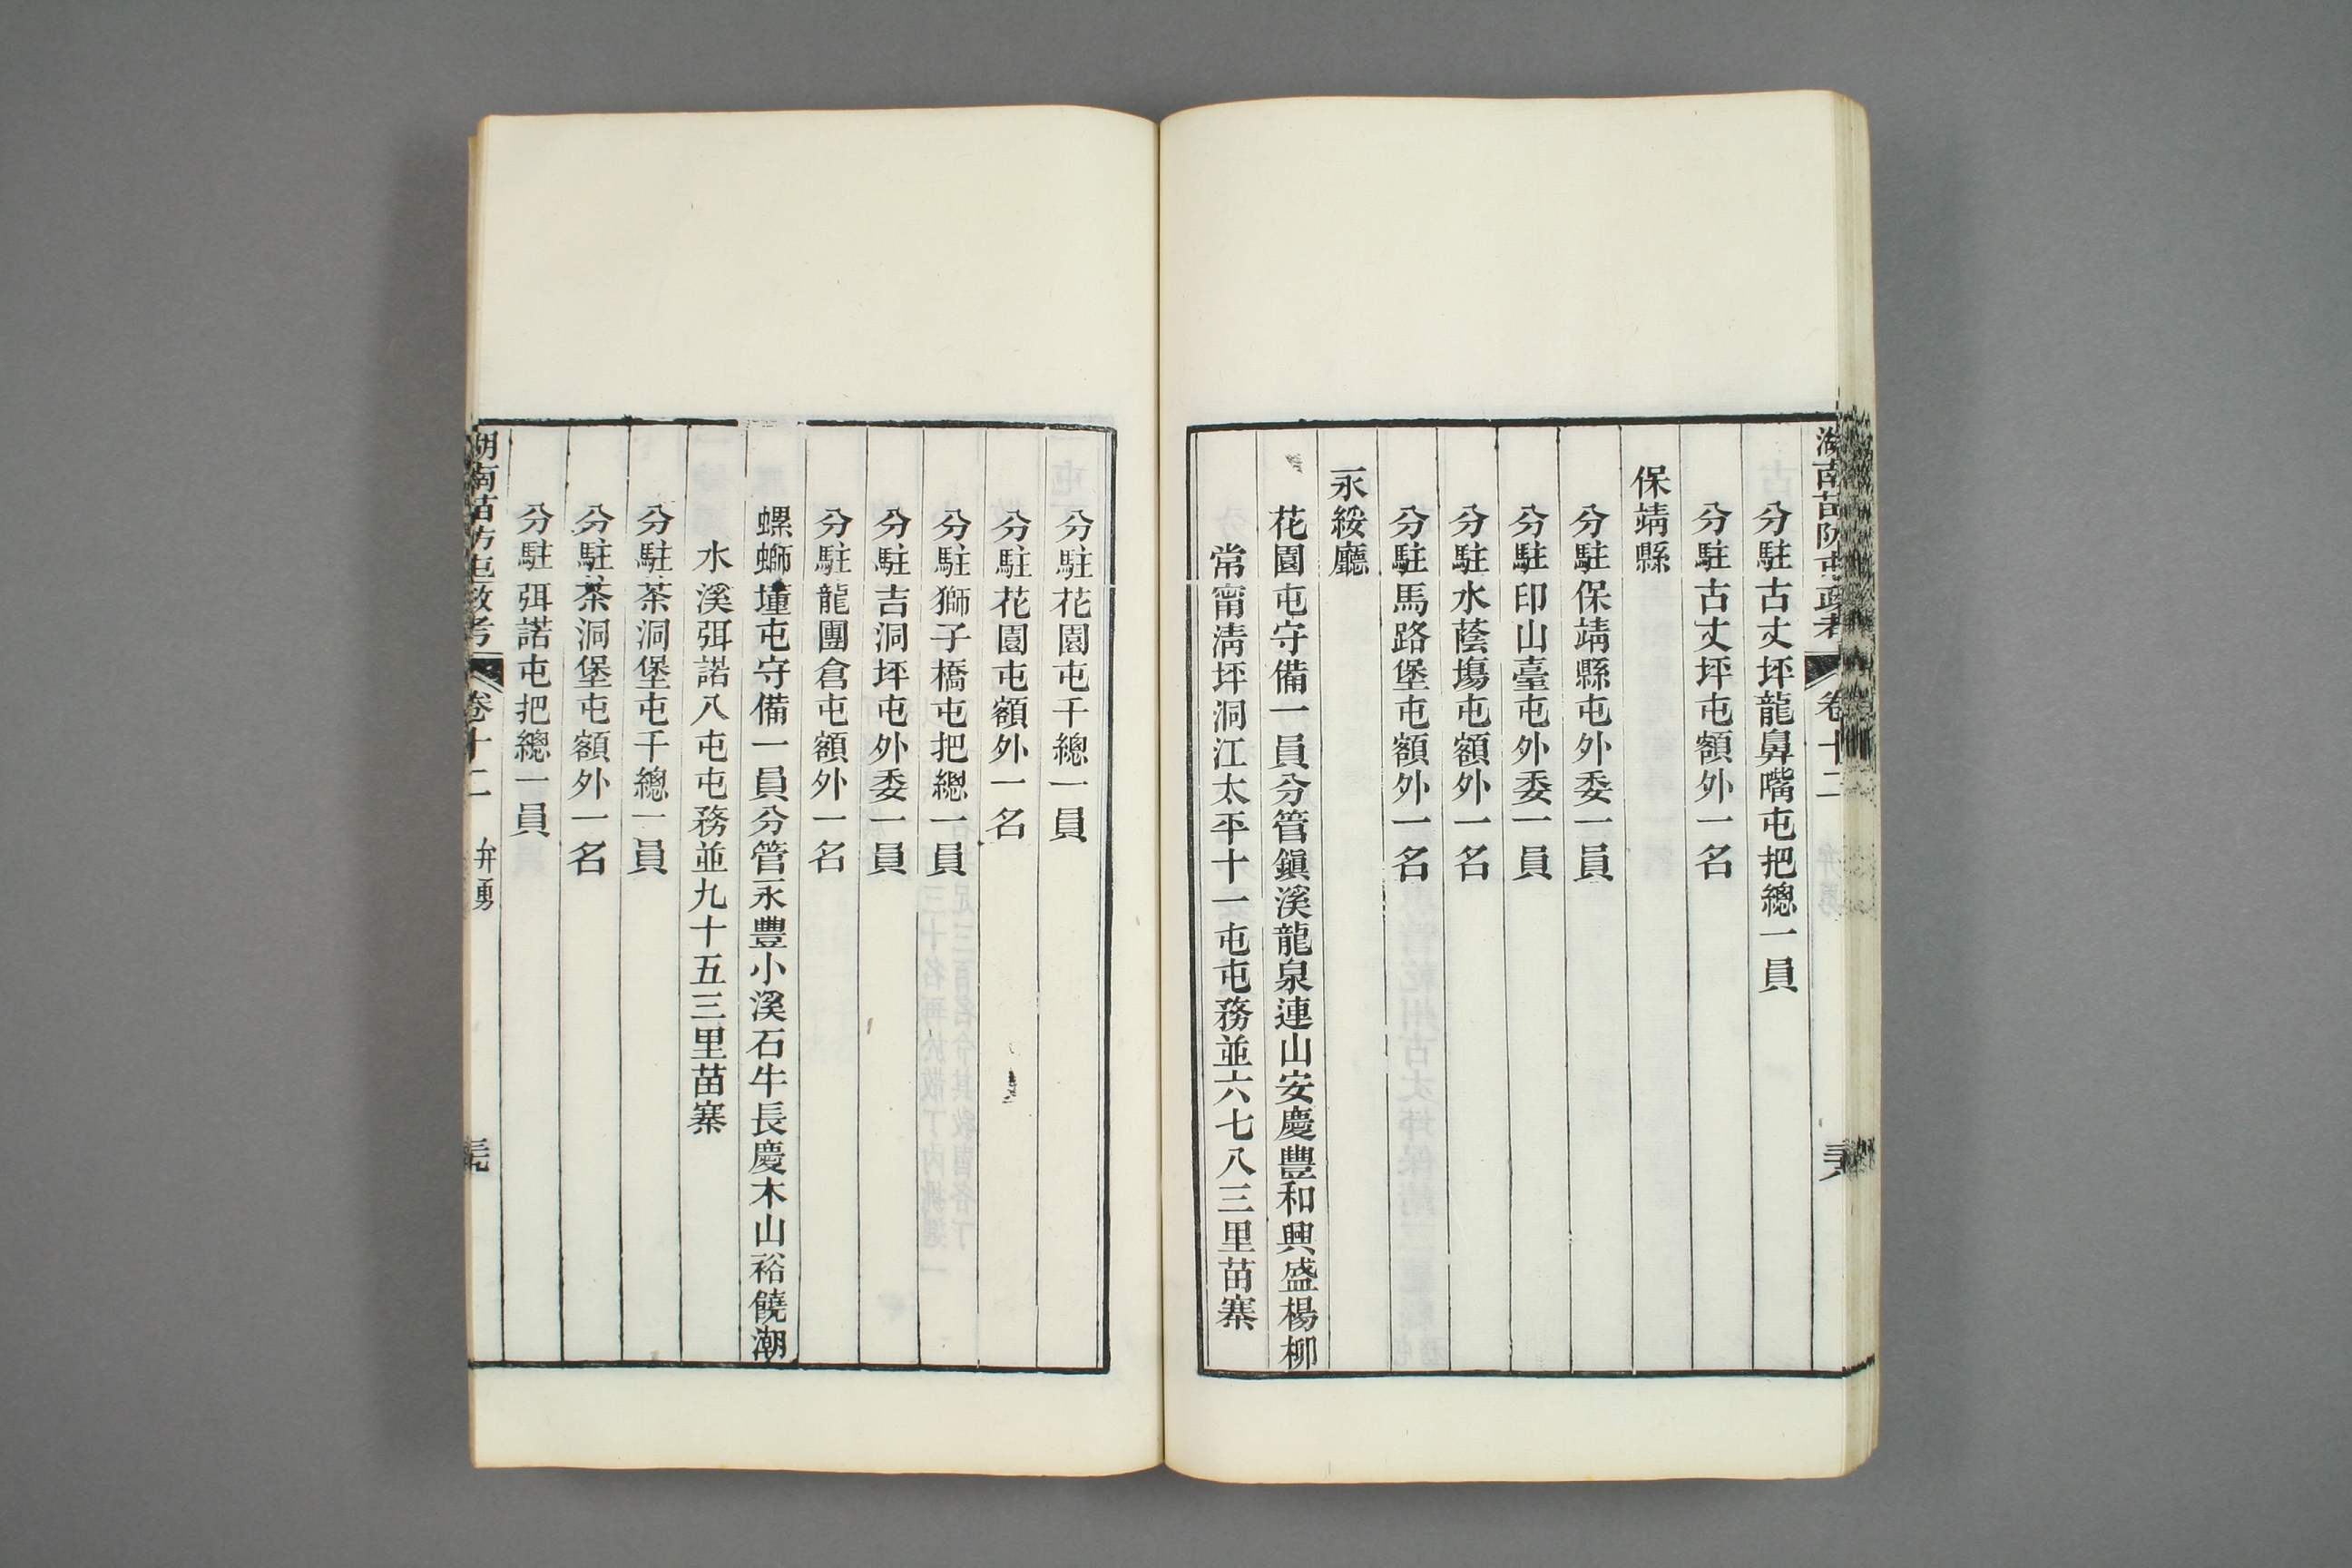 湖南苗防屯政考 卷十二
分駐古丈坪龍鼻嘴屯把總一員
分駐古丈坪屯額外一名
保靖縣
分駐保靖縣屯外委一員
分駐印山臺屯外委一員
分駐水蔭塲屯額外一名
分駐馬路堡屯額外一名
永綏廳
花園屯守備一員分管鎭溪龍泉連山安慶豐和興盛楊柳
常甯淸坪洞江太平十一屯屯務並六七八三里苗寨
分駐花園屯千總一員
分駐花園屯額外一名
分駐獅子橋屯把總一員
分駐吉洞坪屯外委一員
分駐龍團倉屯額外一名
螺螄墥屯守備一員分管永豐小溪石牛長慶木山裕饒潮
水溪弭諾八屯屯務並九十五三里苗寨
分駐茶洞堡屯千總一員
分駐茶洞堡屯額外一名
分駐弭諾屯把總一員
湖南苗防屯政考 卷十二 弁勇